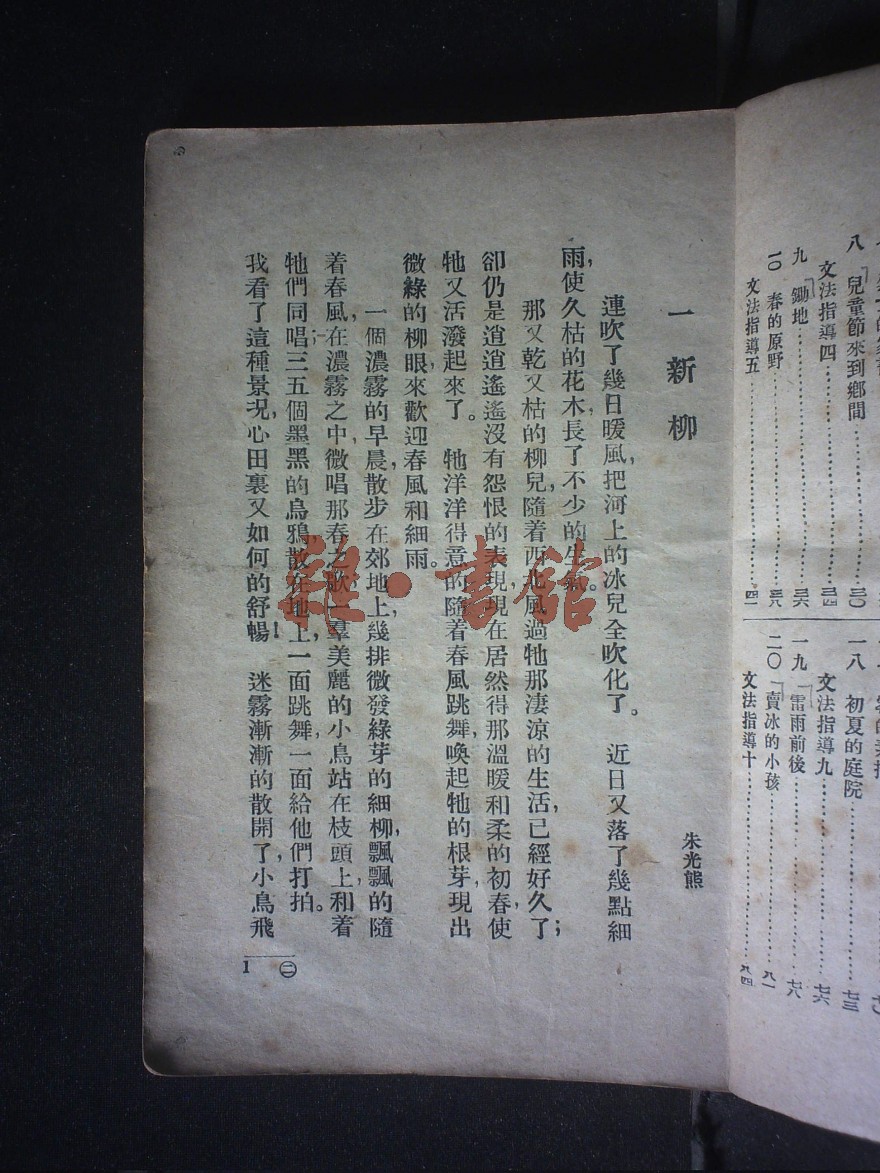 八 兒童節來到鄉間……三〇
文法指導四……三四
九 鋤地……三六
一〇 春的原野……三八
文法指導五……四一
一八 初夏的庭院……七三
文法指導九……七六
一九 雷雨前後……七八
二〇 賣冰的小孩……八一
文法指導十……八四
一 新柳
朱光熊
連吹了幾日暖風,把河上的冰兒全吹化了。近日又落了幾點細
雨,使久枯的花木,長了不少的生氣。
那又乾又枯的柳兒,隨着西北風過牠那淒涼的生活,已經好久了;
卻仍是逍逍遙遙沒有怨恨的表現,現在居然得那溫暖和柔的初春,使
牠又活潑起來了。牠洋洋得意的隨着春風跳舞,喚起牠的根芽,現出
微綠的柳眼,來歡迎春風和細雨。
一個濃霧的早晨,散步在郊地上,幾排微發綠芽的細柳,飄飄的隨
着春風,在濃霧之中,微唱那春之歌,一羣美麗的小鳥站在枝頭上,和着
牠們同唱;三五個墨黑的烏鴉,散在地上,一面跳舞,一面給他們打拍。
我看了這種景況,心田裏又如何的舒暢!迷霧漸漸的散開了,小鳥飛
㊁
1
雜·書館